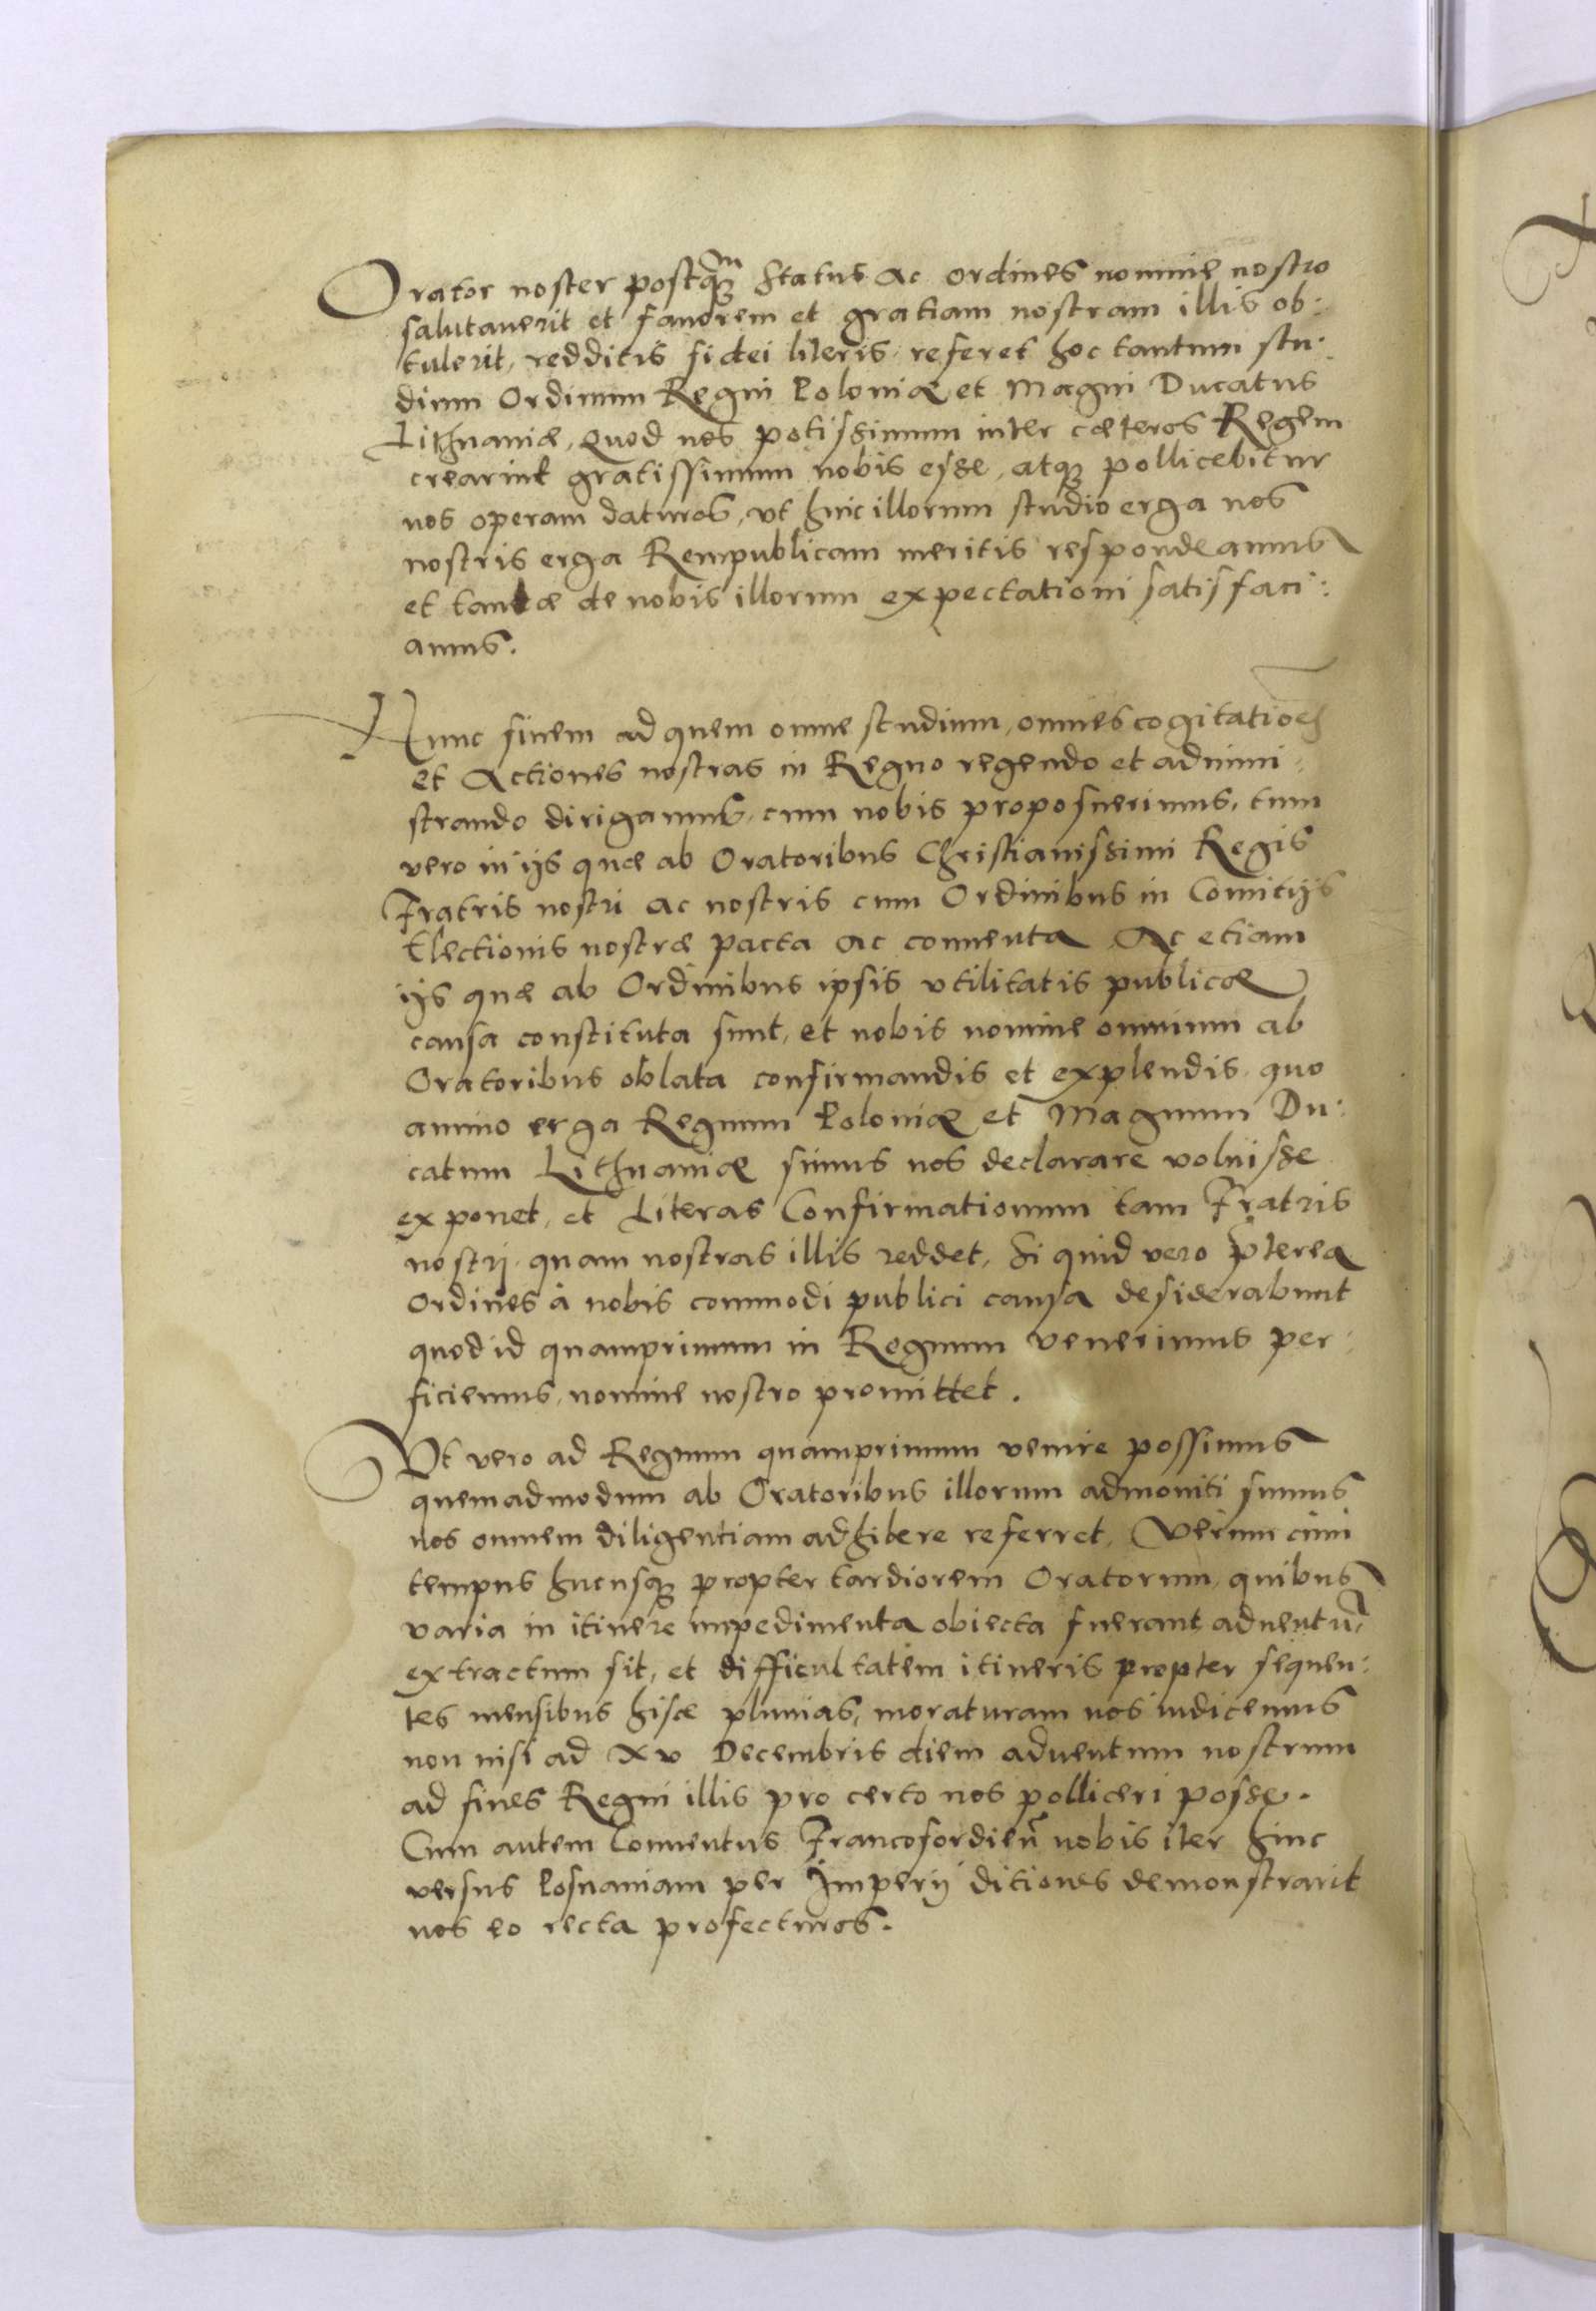 Orator noster postq̃ꝫ Status ac ordines nomine nostro
salutauerit et fauorem et gratiam nostram illis ob:
tulerit, redditis fidei literis, referet hoc tantum stu:
dium Ordinum Regni Poloniæ et Magni Ducatus
Lithuaniæ, Quod nos potissimum inter cæteros Regem
crearint gratissimum nobis esse, atqꝫ pollicebitur
nos operam daturos, vt huic illorum studio erga nos
nostris erga Rempublicam meritis respondeamus
et tantæ de nobis illorum expectationi satisfaci:
amus.
Hunc finem ad quem omne studium, omnes cogitatioēs
et Actiones nostras in Regno regendo et admini:
strando dirigamus, cum nobis proposuerimus, tum
vero in ijs quæ ab Oratoribus Christianissimi Regis
Fratris nostri ac nostris cum Ordinibus in Comitijs
Electionis nostræ pacta ac conuenta Ac etiam
ijs quæ ab Ordinibus ipsis vtilitatis publicæ
causa constituta sunt, et nobis nomine omnium ab
Oratoribus oblata confirmandis et explendis, quo
animo erga Regnum Poloniæ et Magnum Du:
catum Lithuaniæ simus nos declarare voluisse
exponet, et Literas Confirmationum tam Fratris
nostrj, quam nostras illis reddet, Si quid vero p̄terea
Ordines à nobis commodi publici causa desiderabunt
quod id quamprimum in Regnum venerimus per:
ficiemus, nomine nostro promittet.
Vt vero ad Regnum quamprimum venire possimus
quemadmodum ab Oratoribus illorum admoniti sumus
nos omnem diligentiam adhibere referret, Verum cum
tempus hucusqꝫ propter tardiorem Oratorum, quibus
varia in itinere impedimenta obiecta fuerant aduentū,
extractum sit, et difficultatem itineris propter sequen:
tes mensibus hisce pluuias, moraturam nos iudicemus
non nisi ad XV Decembris diem aduentum nostrum
ad fines Regni illis pro certo nos polliceri posse.
Cum autem Conuentus Francofordieñ nobis iter hinc
versus Posnaniam per Imperij ditiones demonstrarit
nos eo recta profecturos.